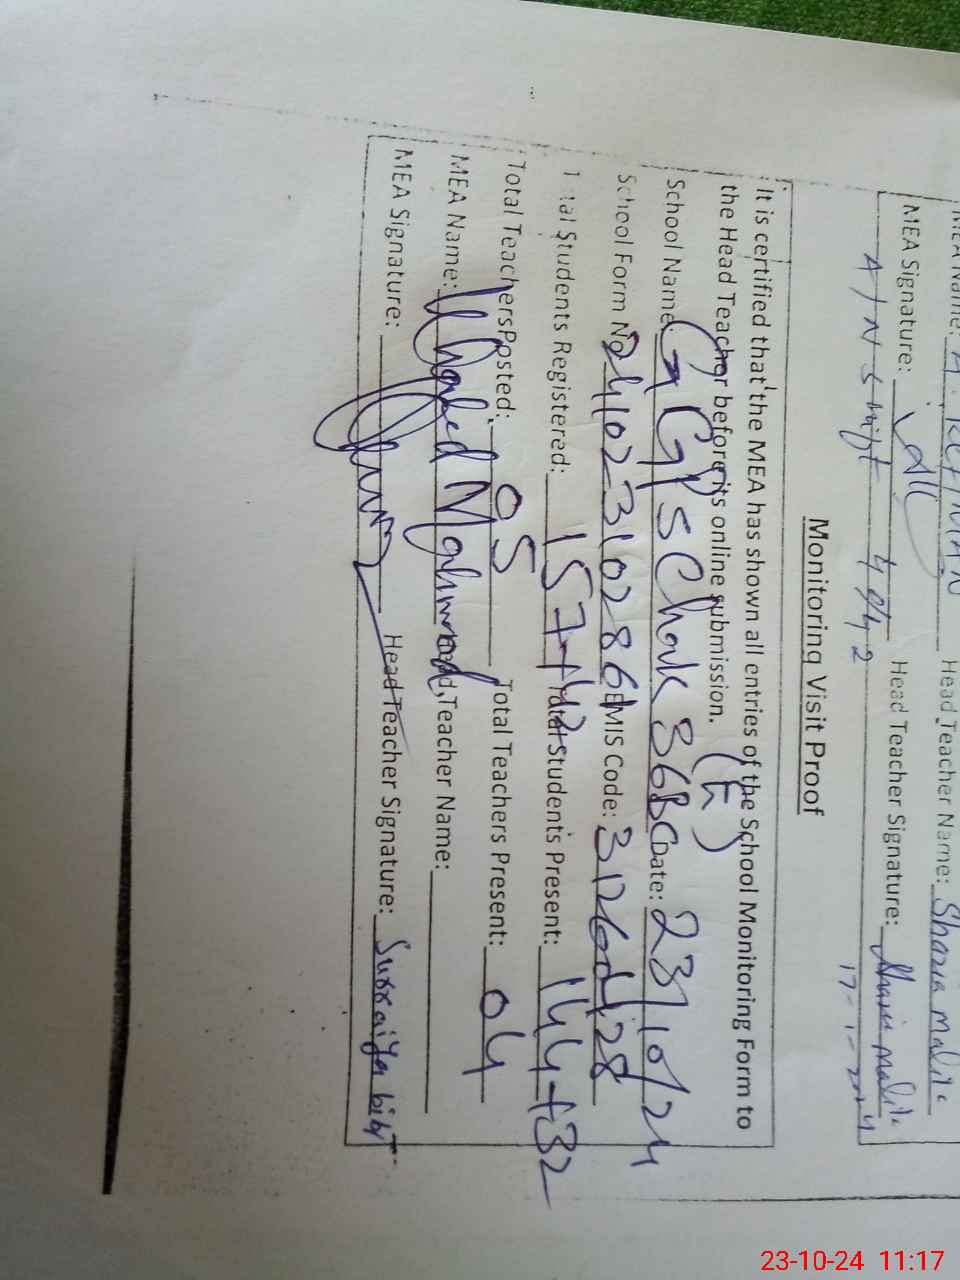 MEA Name: Head Teacher Name: Shazia malik
MEA Signature: Head Teacher Signature: Shazia malik
17-1-2024
Monitoring Visit Proof
It is certified that the MEA has shown all entries of the School Monitoring Form to
the Head Teacher before its online submission. (E)
School Name: GGPS Chak 36BC Date: 23/10/24
School Form No 24102310286 EMIS Code: 31260428
Total Students Registered: 157+42 Total Students Present: 144+32
Total Teachers Posted: 05 Total Teachers Present: 04
MEA Name: Mahmood Head Teacher Name:
MEA Signature: Head Teacher Signature: Surraiya bibi
23-10-24 11:17